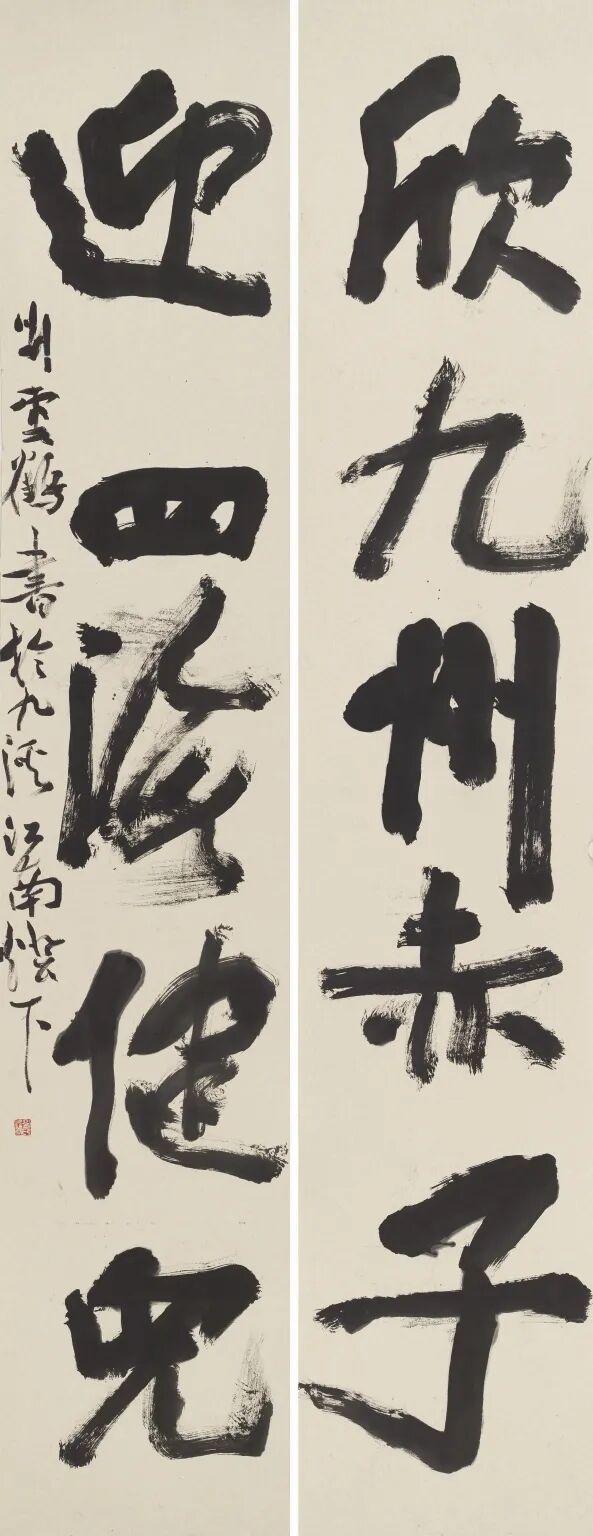 欣九州赤子
迎四海健儿
刘云鹤书于九溪江南灯下